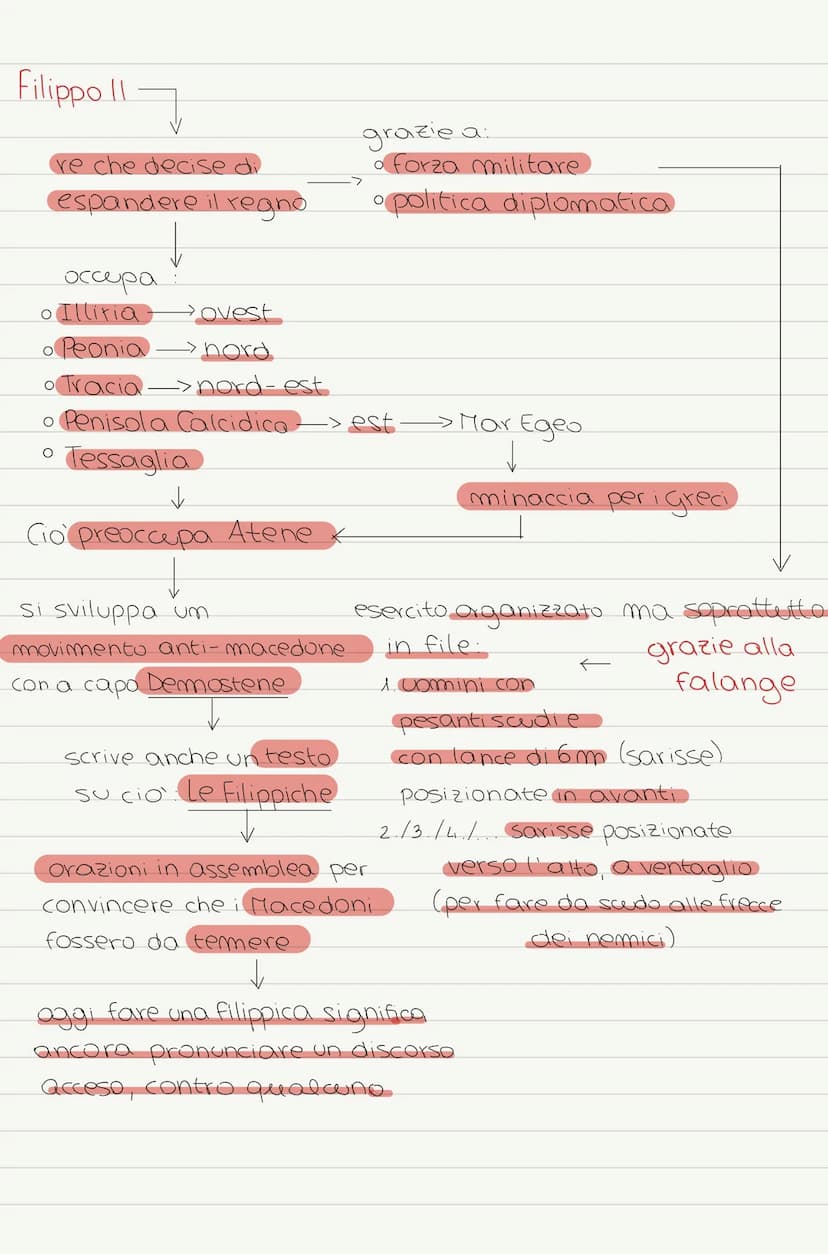 Filippo II
re che decise di
espandere il regno
grazie a:
forza militare
politica diplomatica
occupa :
Illiria → ovest
Peonia → nord
Tracia → nord-est
Penisola Calcidica → est → Mar Egeo
Tessaglia
minaccia per i Greci
Cio' preoccupa Atene
si sviluppa um
movimento anti-macedone
con a capo Demostene
scrive anche un testo
su cio': Le Filippiche
orazioni in assemblea per
convincere che i Macedoni
fossero da temere
oggi fare una filippica significa
ancora pronunciare un discorso
acceso, contro qualcuno
esercito organizzato ma soprattutto
grazie alla
falange
in file:
1. uomini con
pesanti scudi e
con lance di 6 m (sarisse)
posizionate in avanti
2./3./4./... sarisse posizionate
verso l'alto, a ventaglio
(per fare da scudo alle frecce
dei nemici)